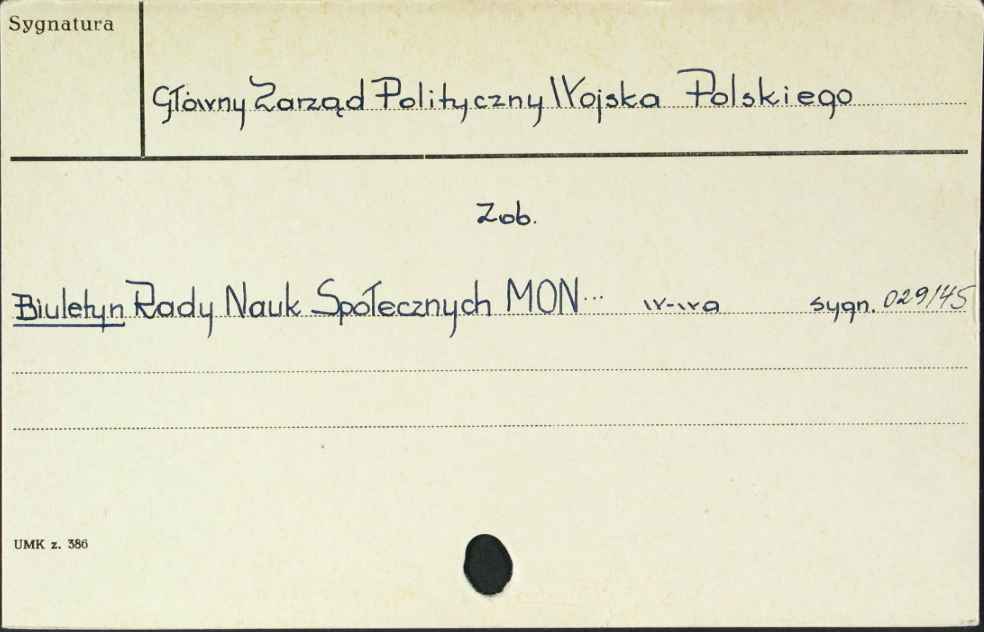 Sygnatura
Główny Zarząd Polityczny Wojska Polskiego
Zob.
Biuletyn Rady Nauk Społecznych MON... W-wa sygn. 029/45
UMK z. 386